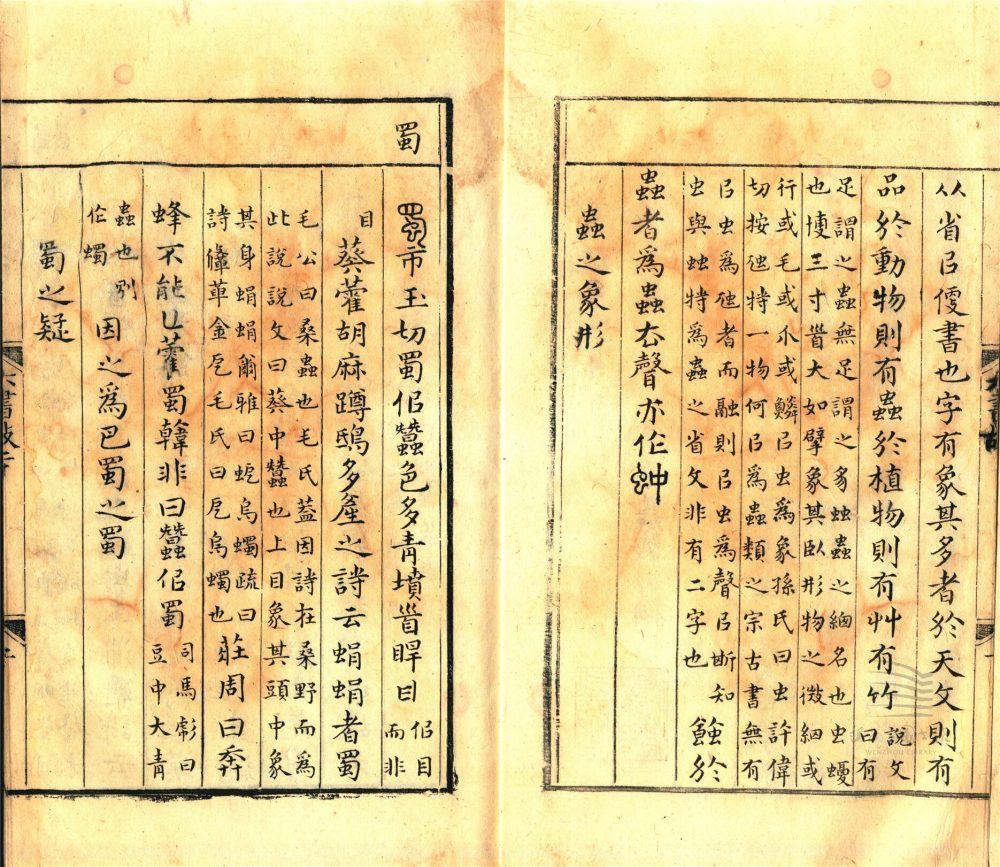 从省㠯㑴書也字有象其多者於天文則有
品於動物則有蟲於植物則有艸有竹
說文
曰有
足謂之蟲無足謂之豸䖵蟲之緫名也虫蝮
也博三寸𩠐大如擘象其臥形物之微細或
行或毛或介或鱗㠯虫爲象孫氏曰虫許偉
切按虺特一物何㠯爲蟲類之宗古書無有
㠯虫爲虺者而融則㠯虫爲聲㠯斯知
虫與䖵特爲蟲之省文非有二字也
蝕於
蟲者爲蟲厺聲亦作蚛
蟲之象形
蜀
蜀市玉切蜀佀蠶色多青墳𩠐睅目
佀目
而非
目
葵藿胡麻蹲鴟多產之詩云蜎蜎者蜀
毛公曰桑蟲也毛氏蓋因詩在桑野而爲
此說說文曰葵中蠶也上目象其頭中象
其身蜎蜎爾雅曰蚅烏蠋疏曰
詩鞗革金厄毛氏曰厄烏蠋也
莊周曰奔
蜂不能㠯藿蜀韓非曰蠶佀蜀
司馬彪曰
豆中大青
蟲也別
作蠋
因之爲巴蜀之蜀
蜀之疑